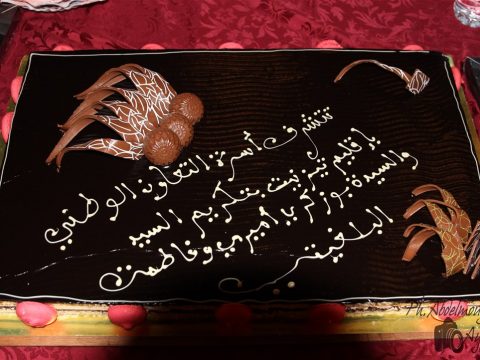 تتشرف أسرة التعاون الوطني
بإقليم تيزنيت بتكريم السيد
والسيدة بوزكر با أمبرجب وفاطمة
البلغيتي
Ph.Abdelmou
Ay